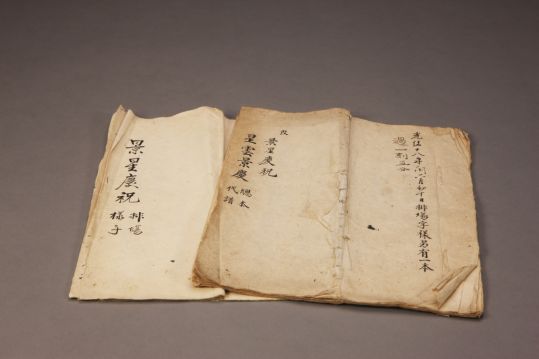 光绪十八年闰六月初十日排場字樣另有一本
過一刻五分
改
景星慶祝
星雲景慶
總本
代譜
景星慶祝
排場
樣子